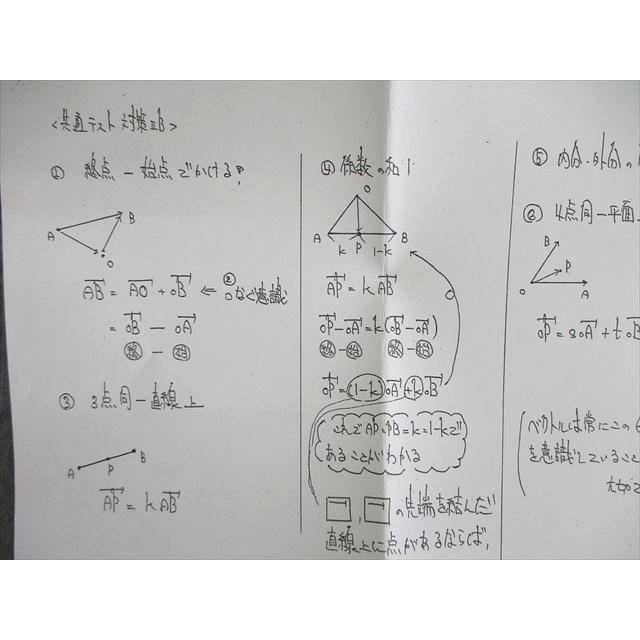 <共通テスト対策ⅡB>
① 終点 - 始点 でかける?
A B O
AB→ = AO→ + OB→ ⇐ ②つなぐ意識
= OB→ - OA→
㊡ - ㊐
③ 3点同一直線上
A P B
AP→ = kAB→
④ 係数の和1
O
A k P 1-k B
AP→ = kAB→
OP→-OA→ = k(OB→-OA→)
終-始 終-始
OP→ = (1-k)OA→ + kOB→
これでAP:PB=k:1-kで
あることがわかる
□,□の先端を結んだ
直線上に点があるならば,
⑤ 内分・外分の
⑥ 4点同一平面上
B P O A
OP→ = sOA→ + tOB→
ベクトルは常にこの6
を意識していること
大切で